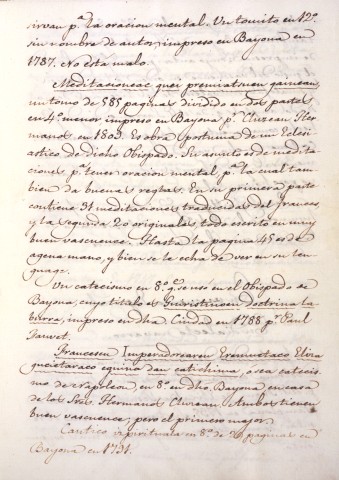 sirvan p.ª la oracion mental. Un tomito en 12º
sin nombre de autor, impreso en Bayona en
1787. No esta malo.
Meditacioneac guei premiatsuen gainean,
un tomo de 585 paginas dividido en dos partes
en 4º menor impreso en Bayona p.r Cluzeau Her
manos en 1809. Es obra postuma de un Eclesi
astico de dicho Obispado. Su asunto es de medita
ciones p.ª tener oracion mental, p.ª la cual tam
bien da buenas reglas. En su primera parte
contiene 31 meditaciones traducidas del frances
y la segunda 20 originales, todo escrito en muy
buen vascuence. Hasta la pagina 45 es de
agena mano, y bien se le echa de ver en su len
guage.
Un catecismo en 8º q.e se usa en el Obispado de
Bayona, cuyo titulo es Guiristinoen doctrina la
burra, impreso en dha. Ciudad en 1788 p.r Paul
Fauvet.
Francesen Imperadorearen Erresumetaco Eliza
gucietaraco eguina den catichima, ó sea catecis
mo de Napoleon, en 8º en dho. Bayona en casa
de los Sres. Hermanos Cluzeau. Ambos tienen
buen vascuence, pero el primero mejor.
Cantico izpirituala en 8º de paginas en
Bayona en 1731.